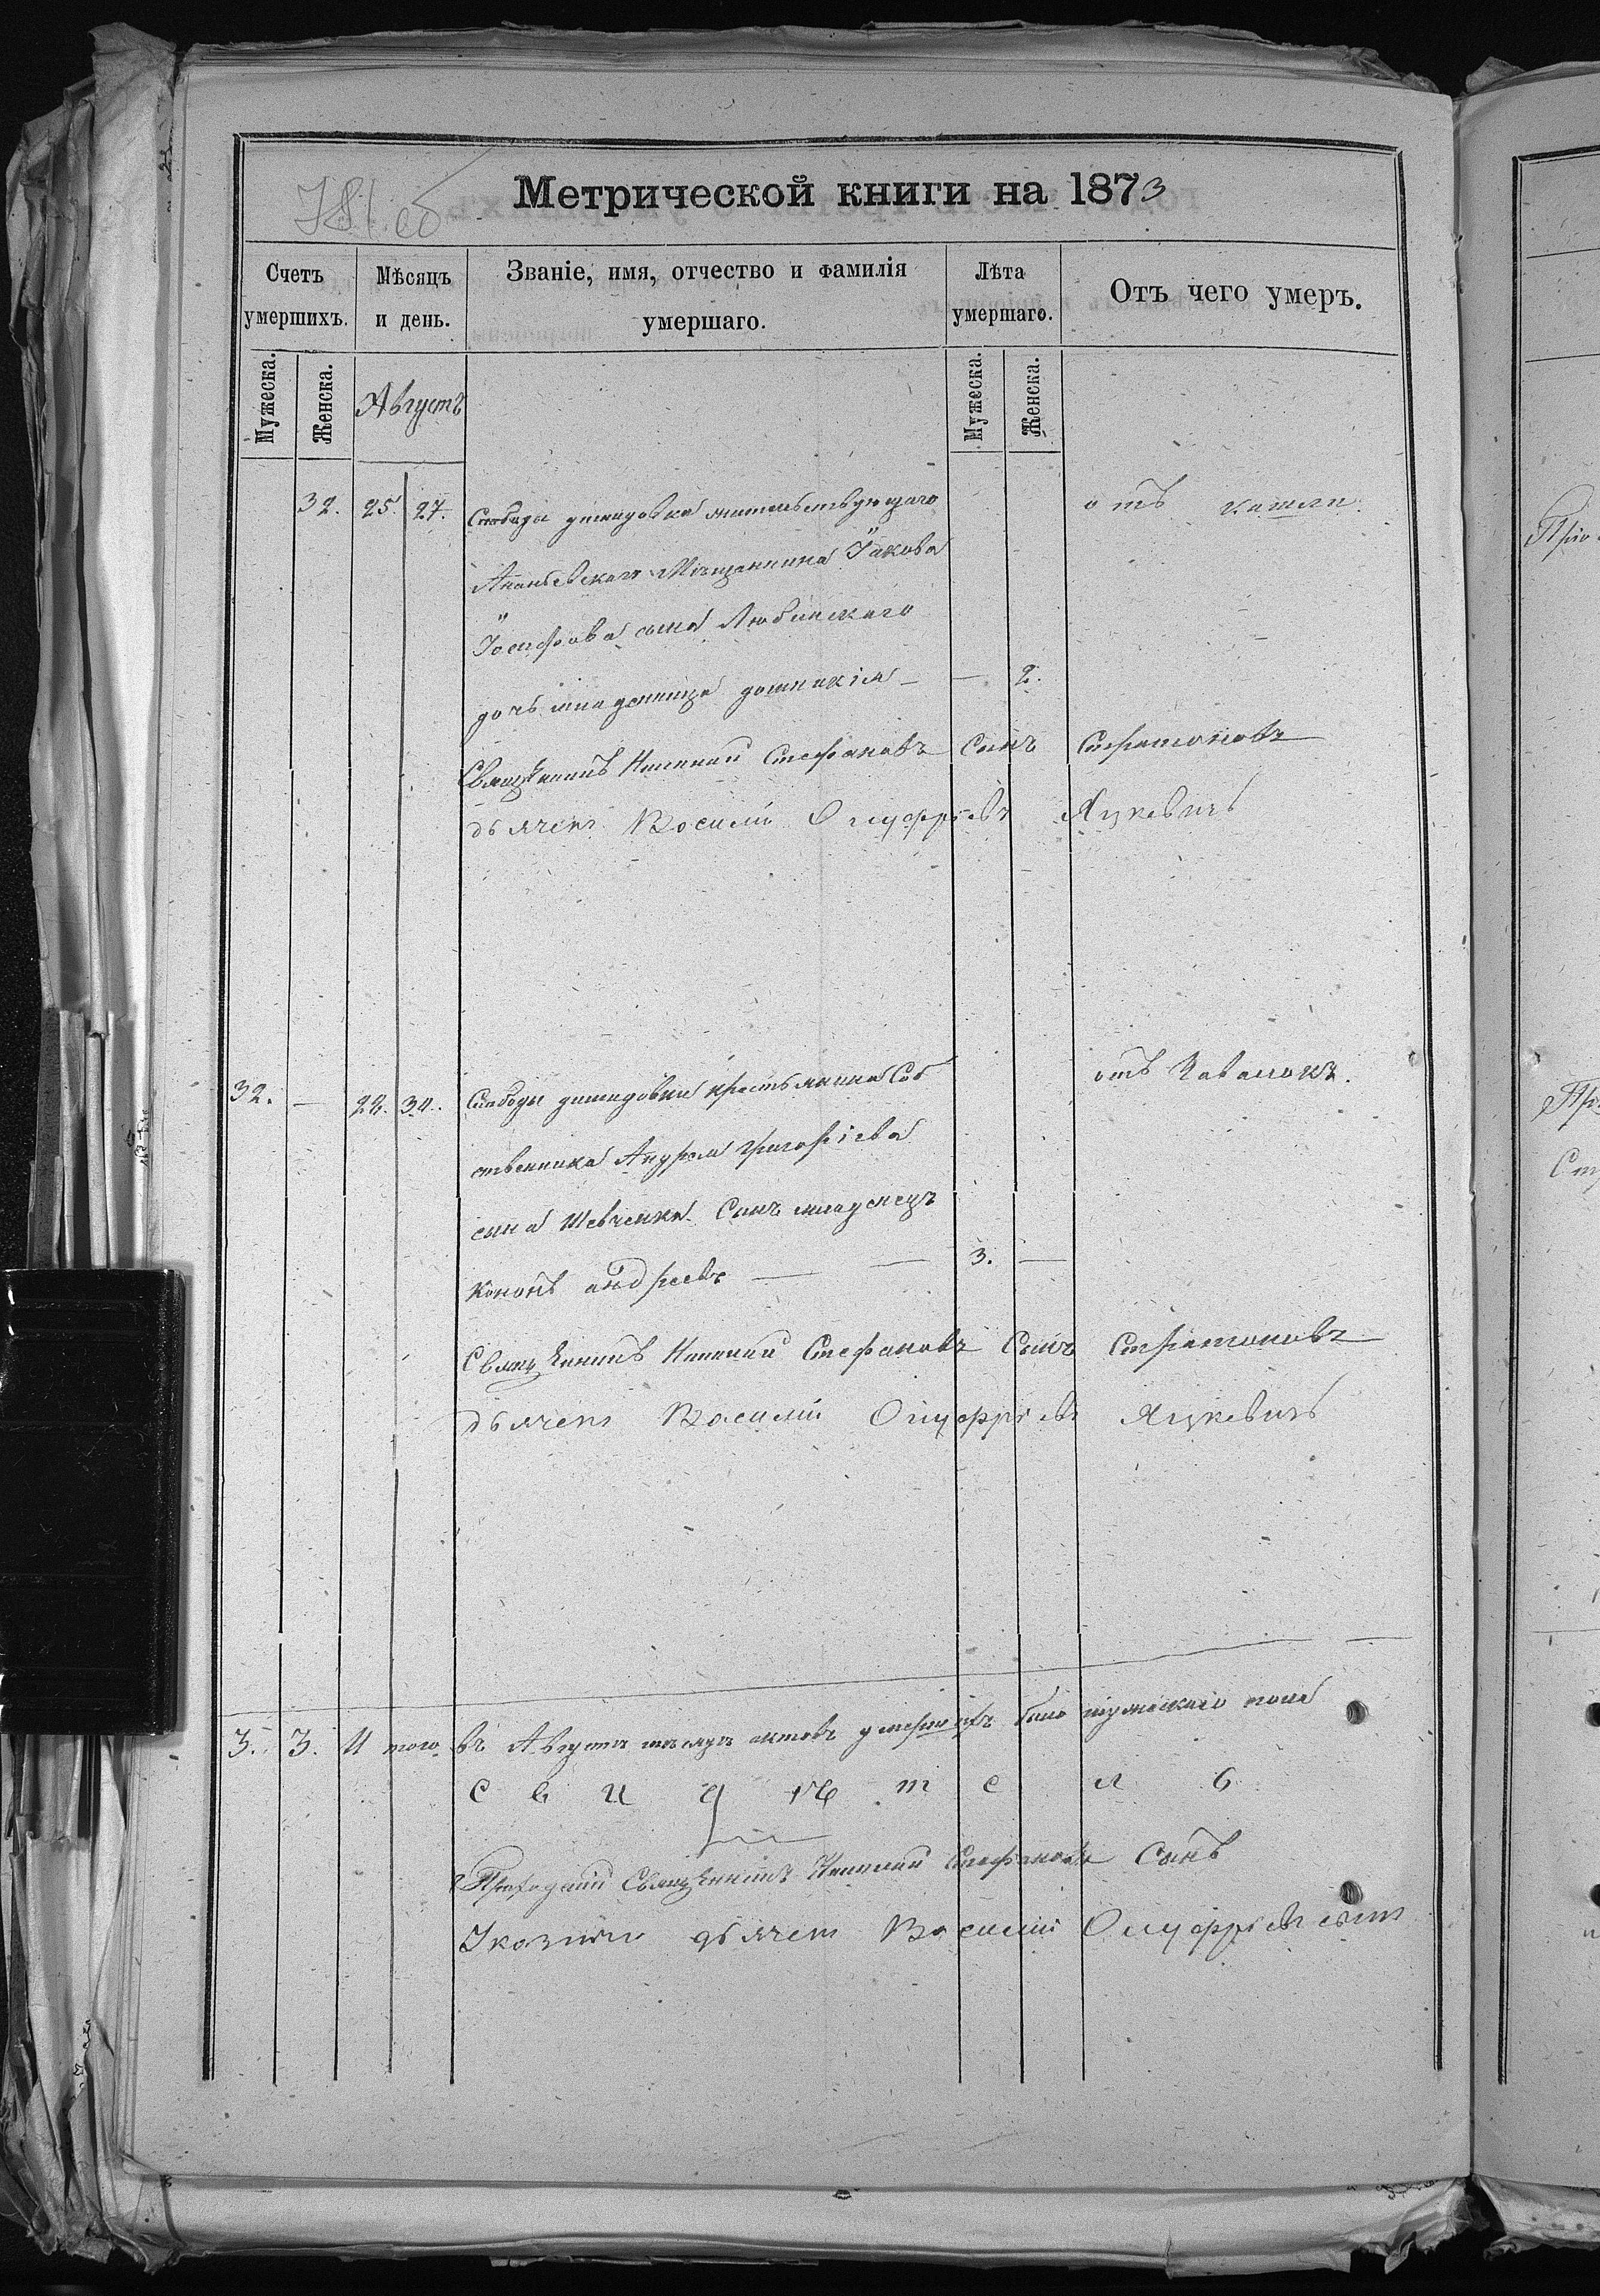 781 об
Метрической книги на 1873
Счетъ умершихъ.
Мѣсяцъ и день.
Званіе, имя, отчество и фамилія умершаго.
Лѣта умершаго.
Отъ чего умеръ.
Мужеска.
Женска.
Августъ
Мужеска.
Женска.
32. 25. 27. Слободы демидовка жительствующаго отъ кашля.
Ананьевскаго Мѣщанина Іакова
Іосифова сына Любинскаго
дочь младеница домникія — — 2.
Священникъ Стефановъ Сынъ Стратоновъ
дьячекъ Василій Онуфріевъ Яцкевичъ
32. — 28. 30. Слободы демидовки крестьянина Соб
ственника Андрея григоріева
сына Шевченка Сынъ младенецъ
Кононъ андреевъ — — 3. —
Священникъ Стефановъ Сынъ Стратоновъ
дьячекъ Василій Онуфріевъ Яцкевичъ
3. 3. И того въ Августѣ мѣсяцѣ умершихъ было мужескаго пола
С в и д ѣ т е л ь
Приходскій Священникъ Стефановъ Сынъ
Указный дьячекъ Василій Онуфріевъ сынъ